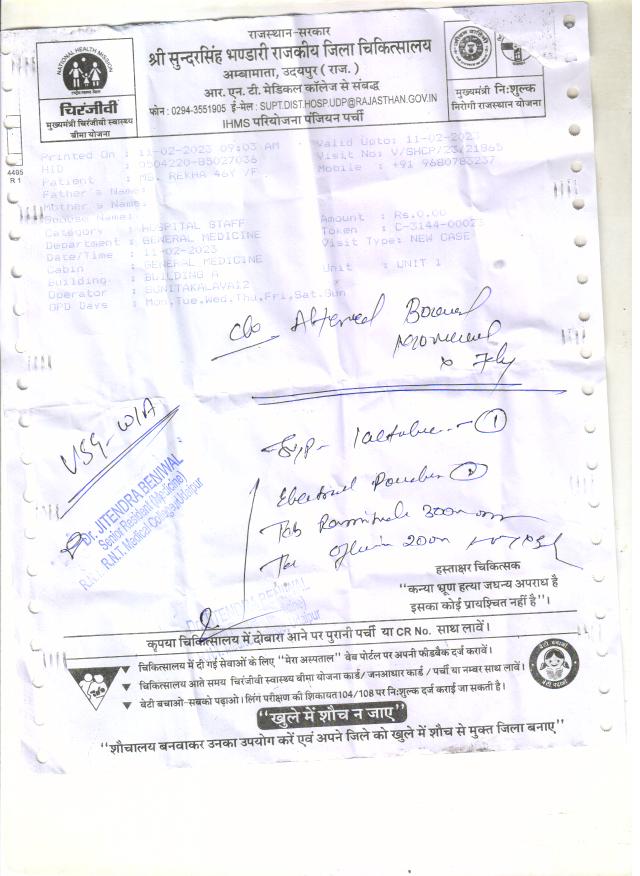 राजस्थान-सरकार
श्री सुन्दरसिंह भण्डारी राजकीय जिला चिकित्सालय
अम्बामाता, उदयपुर ( राज. )
आर. एन. टी. मेडिकल कॉलेज से संबद्ध
फोन : 0294-3551905 ई-मेल : SUPT.DIST.HOSP.UDP@RAJASTHAN.GOV.IN
IHMS परियोजना पंजियन पर्ची
NATIONAL HEALTH MISSION
चिरंजीवी
मुख्यमंत्री चिरंजीवी स्वास्थ्य
बीमा योजना
मुख्यमंत्री नि:शुल्क
निरोगी राजस्थान योजना
4495
R 1
Printed On : 11-02-2023 09:03 AM
Valid Upto: 11-02-2023
HID : 0504220-85027036
Visit No: V/SHCP/23/21865
Patient : MS. REKHA 46Y /F
Mobile : +91 9680783237
Father's Name:
Mother's Name:
Spouse Name:
Category : HOSPITAL STAFF
Amount : Rs.0.00
Department : GENERAL MEDICINE
Token : C-3144-00023
Date/Time : 11-02-2023
Visit Type: NEW CASE
Cabin : GENERAL MEDICINE
Building : BUILDING A
Unit : UNIT 1
Operator : SUNITAKALAVA12
OPD Days : Mon,Tue,Wed,Thu,Fri,Sat,Sun
c/o Altered Bowel
USG-W/A
Syp-
1
2
Tab
200
Dr. JITENDRA BENIWAL
Senior Resident (Medicine)
R.N.T. Medical College, Udaipur
हस्ताक्षर चिकित्सक
“कन्या भ्रूण हत्या जघन्य अपराध है
इसका कोई प्रायश्चित नहीं है”।
कृपया चिकित्सालय में दोबारा आने पर पुरानी पर्ची या CR No. साथ लावें।
चिकित्सालय में दी गई सेवाओं के लिए "मेरा अस्पताल" वेब पोर्टल पर अपनी फीडबैक दर्ज करावें।
चिकित्सालय आते समय चिरंजीवी स्वास्थ्य बीमा योजना कार्ड/जनआधार कार्ड / पर्ची या नम्बर साथ लावें।
बेटी बचाओ-सबको पढ़ाओ। लिंग परीक्षण की शिकायत 104/108 पर नि:शुल्क दर्ज कराई जा सकती है।
“खुले में शौच न जाए”
“शौचालय बनवाकर उनका उपयोग करें एवं अपने जिले को खुले में शौच से मुक्त जिला बनाए”